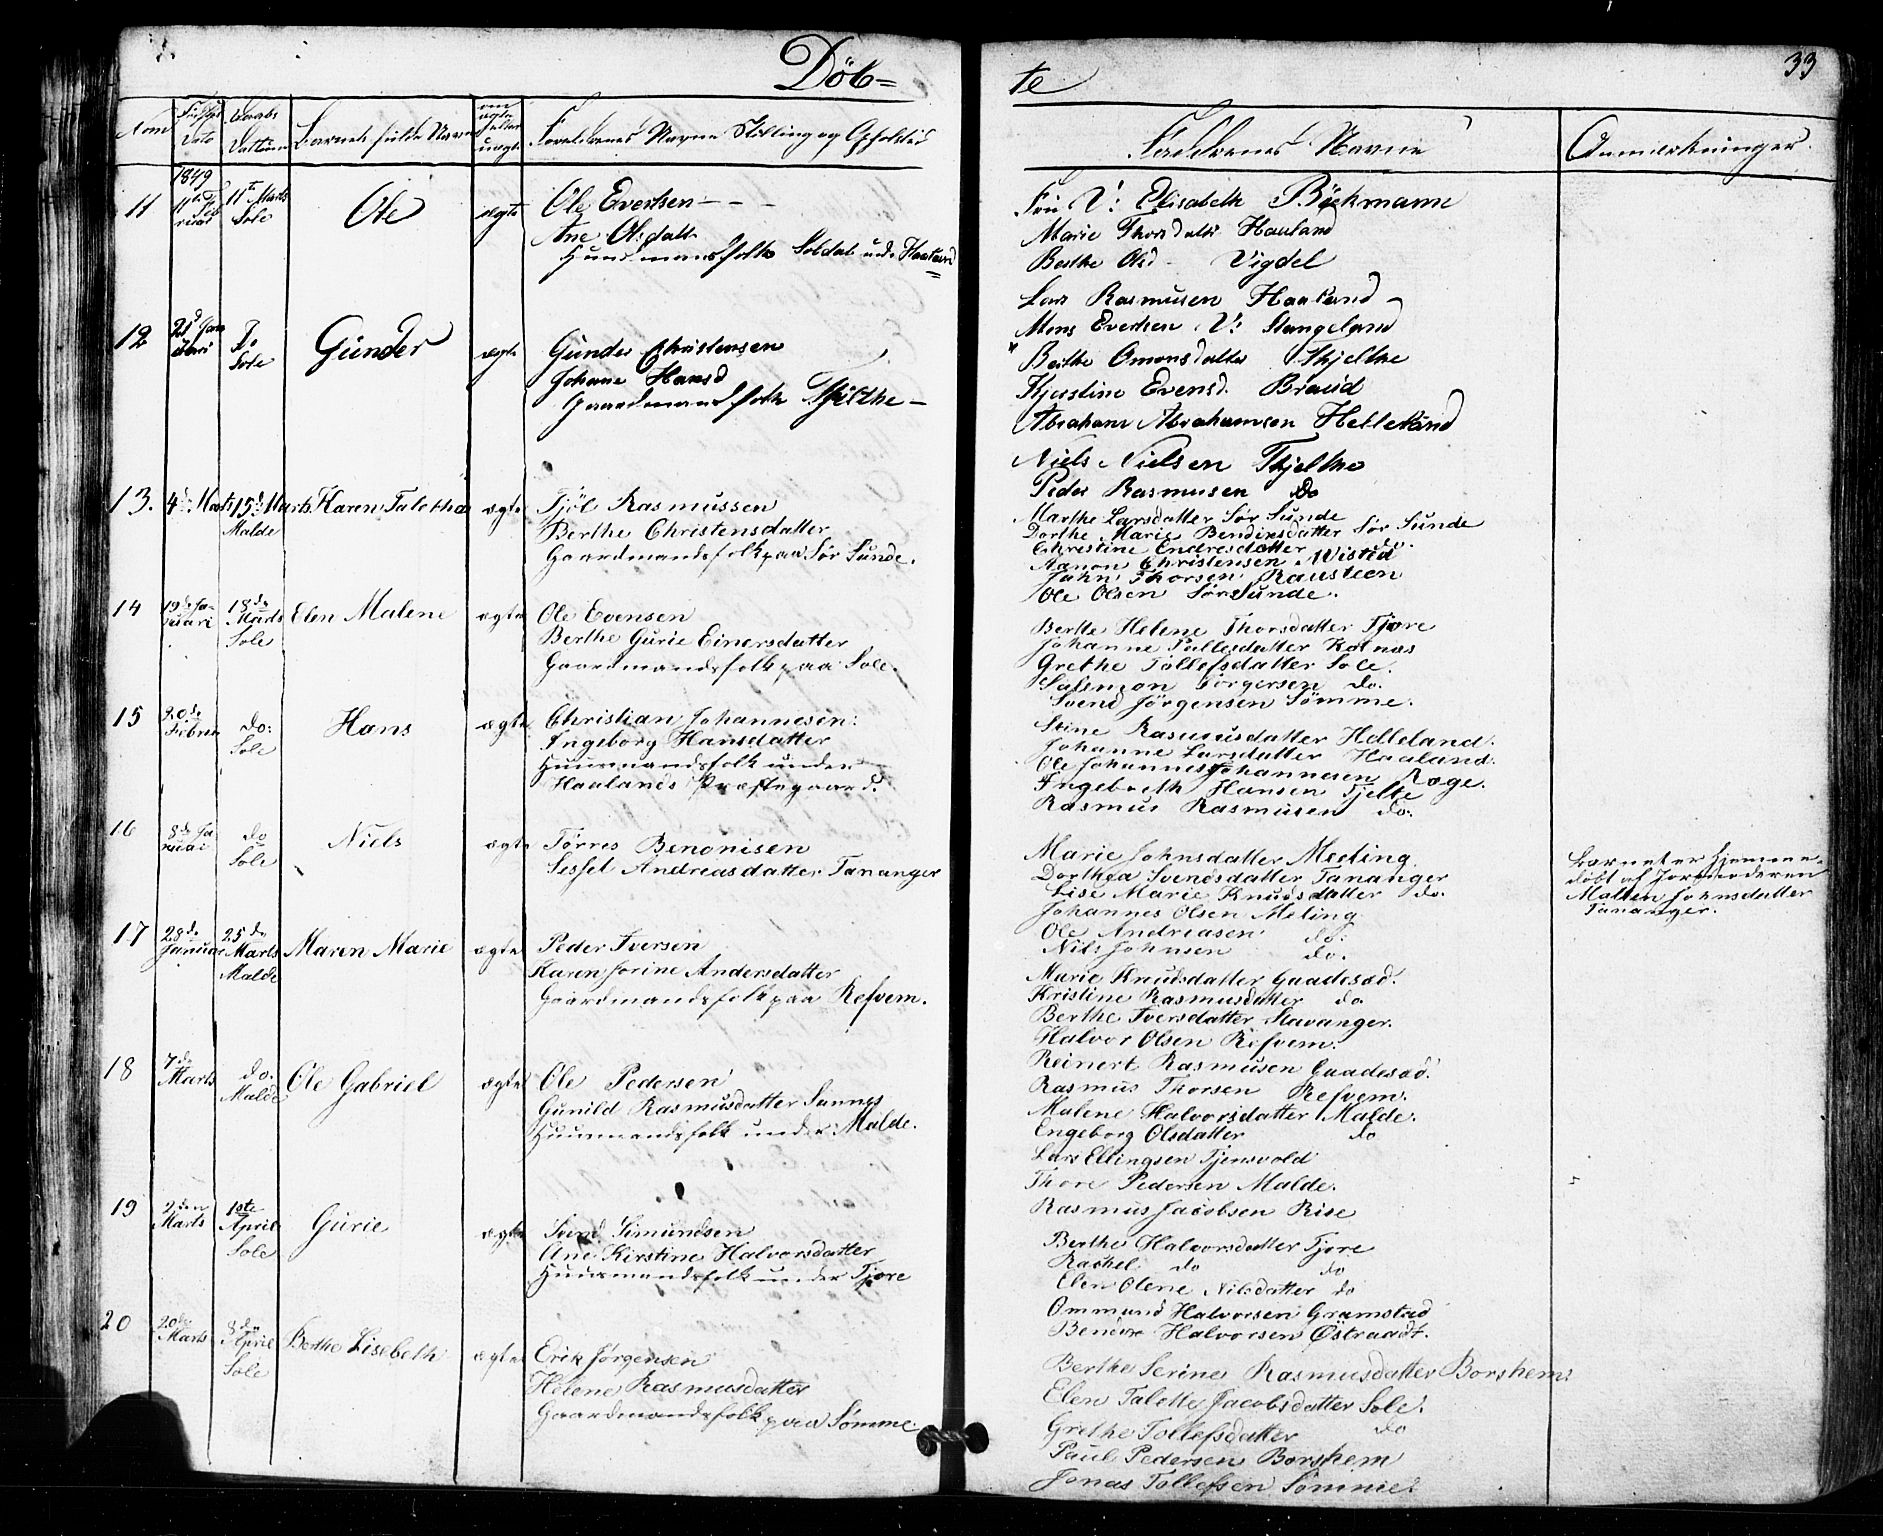 Døb=
te
33
Barnets fulde Navn
Forældrenes Navne Stilling og Opholds
Faddernes Navne
Anmerkninger.
1849
11 11te Feb ruar 11te Marts Sole Ole ægte Ole Evertsen - - -
Ane Olsdatt
Huusmandsfolk Soldat
12 21d Jan uari Do Sole Gunder ægte Gunder Christensen
Johane Hansd
Gaardmandsfolk Tjelthe -
13. 4de Marts 15de Marts Malde Karen Talethe ægte Tjöl Rasmussen
Berthe Christensdatter
Gaardmandsfolk paa Sør Sunde.
14 19de Ja- nuari 18de Marts Sole Elen Malene ægte Ole Evensen
Berthe Gurie Einersdatter
Gaardmandsfolk paa Sole.
15 20de Februa do: Sole Hans ægte Christian Johannesen:
Ingeborg Hansdatter
Huusmandsfolk under
Haalands Præstegaard.
16 8de Ja nuai do Sole Niels ægte Tørres Benonisen
Sissel Andreasdatter Tananger
17 28de Januar 25de Marts Malde Maren Marie ægte Peder Iversen
Karen Jorine Andersdatter
Gaardmandsfolk paa Refvem.
18 7de Marts do. Malde Ole Gabriel ægte Ole Pedersen
Gunild Rasmusdatter Sannes
Huusmandsfolk under Malde.
19 2den Marts 1ste April Sole Gurie ægte Svend Simundsen
Ane Kirstine Halvorsdatter
Huusmandsfolk under Tjore
20 20de Marts 8de April Sole Berthe Lisebeth ægte Erik Jørgensen
Helene Rasmusdatter
Gaardmandsfolk paa Sømme
V: Elisabeth Böckmann
Marie Thorsdatter Hauland
Berthe Olsd - Vigdel
Lars Rasmusen Haaland -
Mons Evertsen V: Stangeland
Berthe Omonsdatter Thjelthe
Kjerstine Evensd. Braud
Abraham Abrahamsen Helleland
Niels Nielsen Thjelthe
Peder Rasmusen Do
Marthe Larsdatter Sør Sunde
Dorthe Marie Bendixsdatter Sør Sunde
Christine Endresdatter do.
Aanon Christensen Wisted
John Thorsen Rausteen
Ole Olsen Sør Sunde.
Berthe Helene Thorsdatter Tjore
Johanne Pallesdatter Kolnæs
Grethe Tollefsdatter Sole.
Salemon Torgersen do.
Svend Jörgensen Sömme.
Stine Rasmusdatter Helleland.
Johanne Larsdatter Haaland.
Ole Johannesen Ræge.
Ingebreth Hansen Tjelte
Rasmus Rasmusen do:
Marie Johnsdatter Meeling
Dorthea Svendsdatter Tananger
Lise Marie Knudsdatter do.
Johannes Olsen Meling
Ole Andreasen do:
Nils Johnsen do.
Barnet er hjemme-
døbt af Jormoderen
Malen Johnsdatter
Tananger.
Marie Knudsdatter Gaadesød.
Kristine Rasmusdatter do
Berthe Iversdatter Stavanger.
Halvor Olsen Refvem.
Reinert Rasmusen Gaadesød.
Rasmus Thorsen Refvem.
Malene Halvorsdatter Malde.
Engeborg Olsdatter do
Lars Ellingsen Tjensvold
Thore Pedersen Malde.
Rasmus Jacobsen Rise
Berthe Halvorsdatter Tjore
Rachel do do
Elen Olene Nilsdatter do
Ommund Halvorsen Gramstad
Halvorsen Østraadt.
Berthe Serine Rasmusdatter Borshem:
Elen Talette Jacobsdatter Sole.
Grethe Tollefsdatter do
Paul Pedersen Borshem
Jonas Tollefsen Sömme.